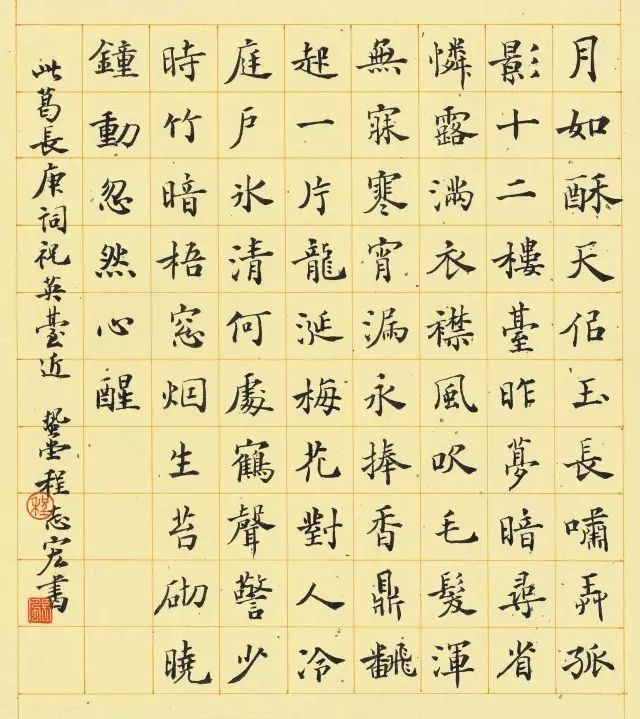 月如酥天佀玉長嘯弄孤
影十二樓臺昨夢暗尋省
憐露滿衣襟風吹毛髮渾
無寐寒宵漏永捧香鼎飜
起一片龍涎梅花對人冷
庭戶氷清何處鶴聲警少
時竹暗梧窓烟生苔砌曉
鐘動忽然心醒
此葛長庚詞祝英臺近 堂程志宏書
程